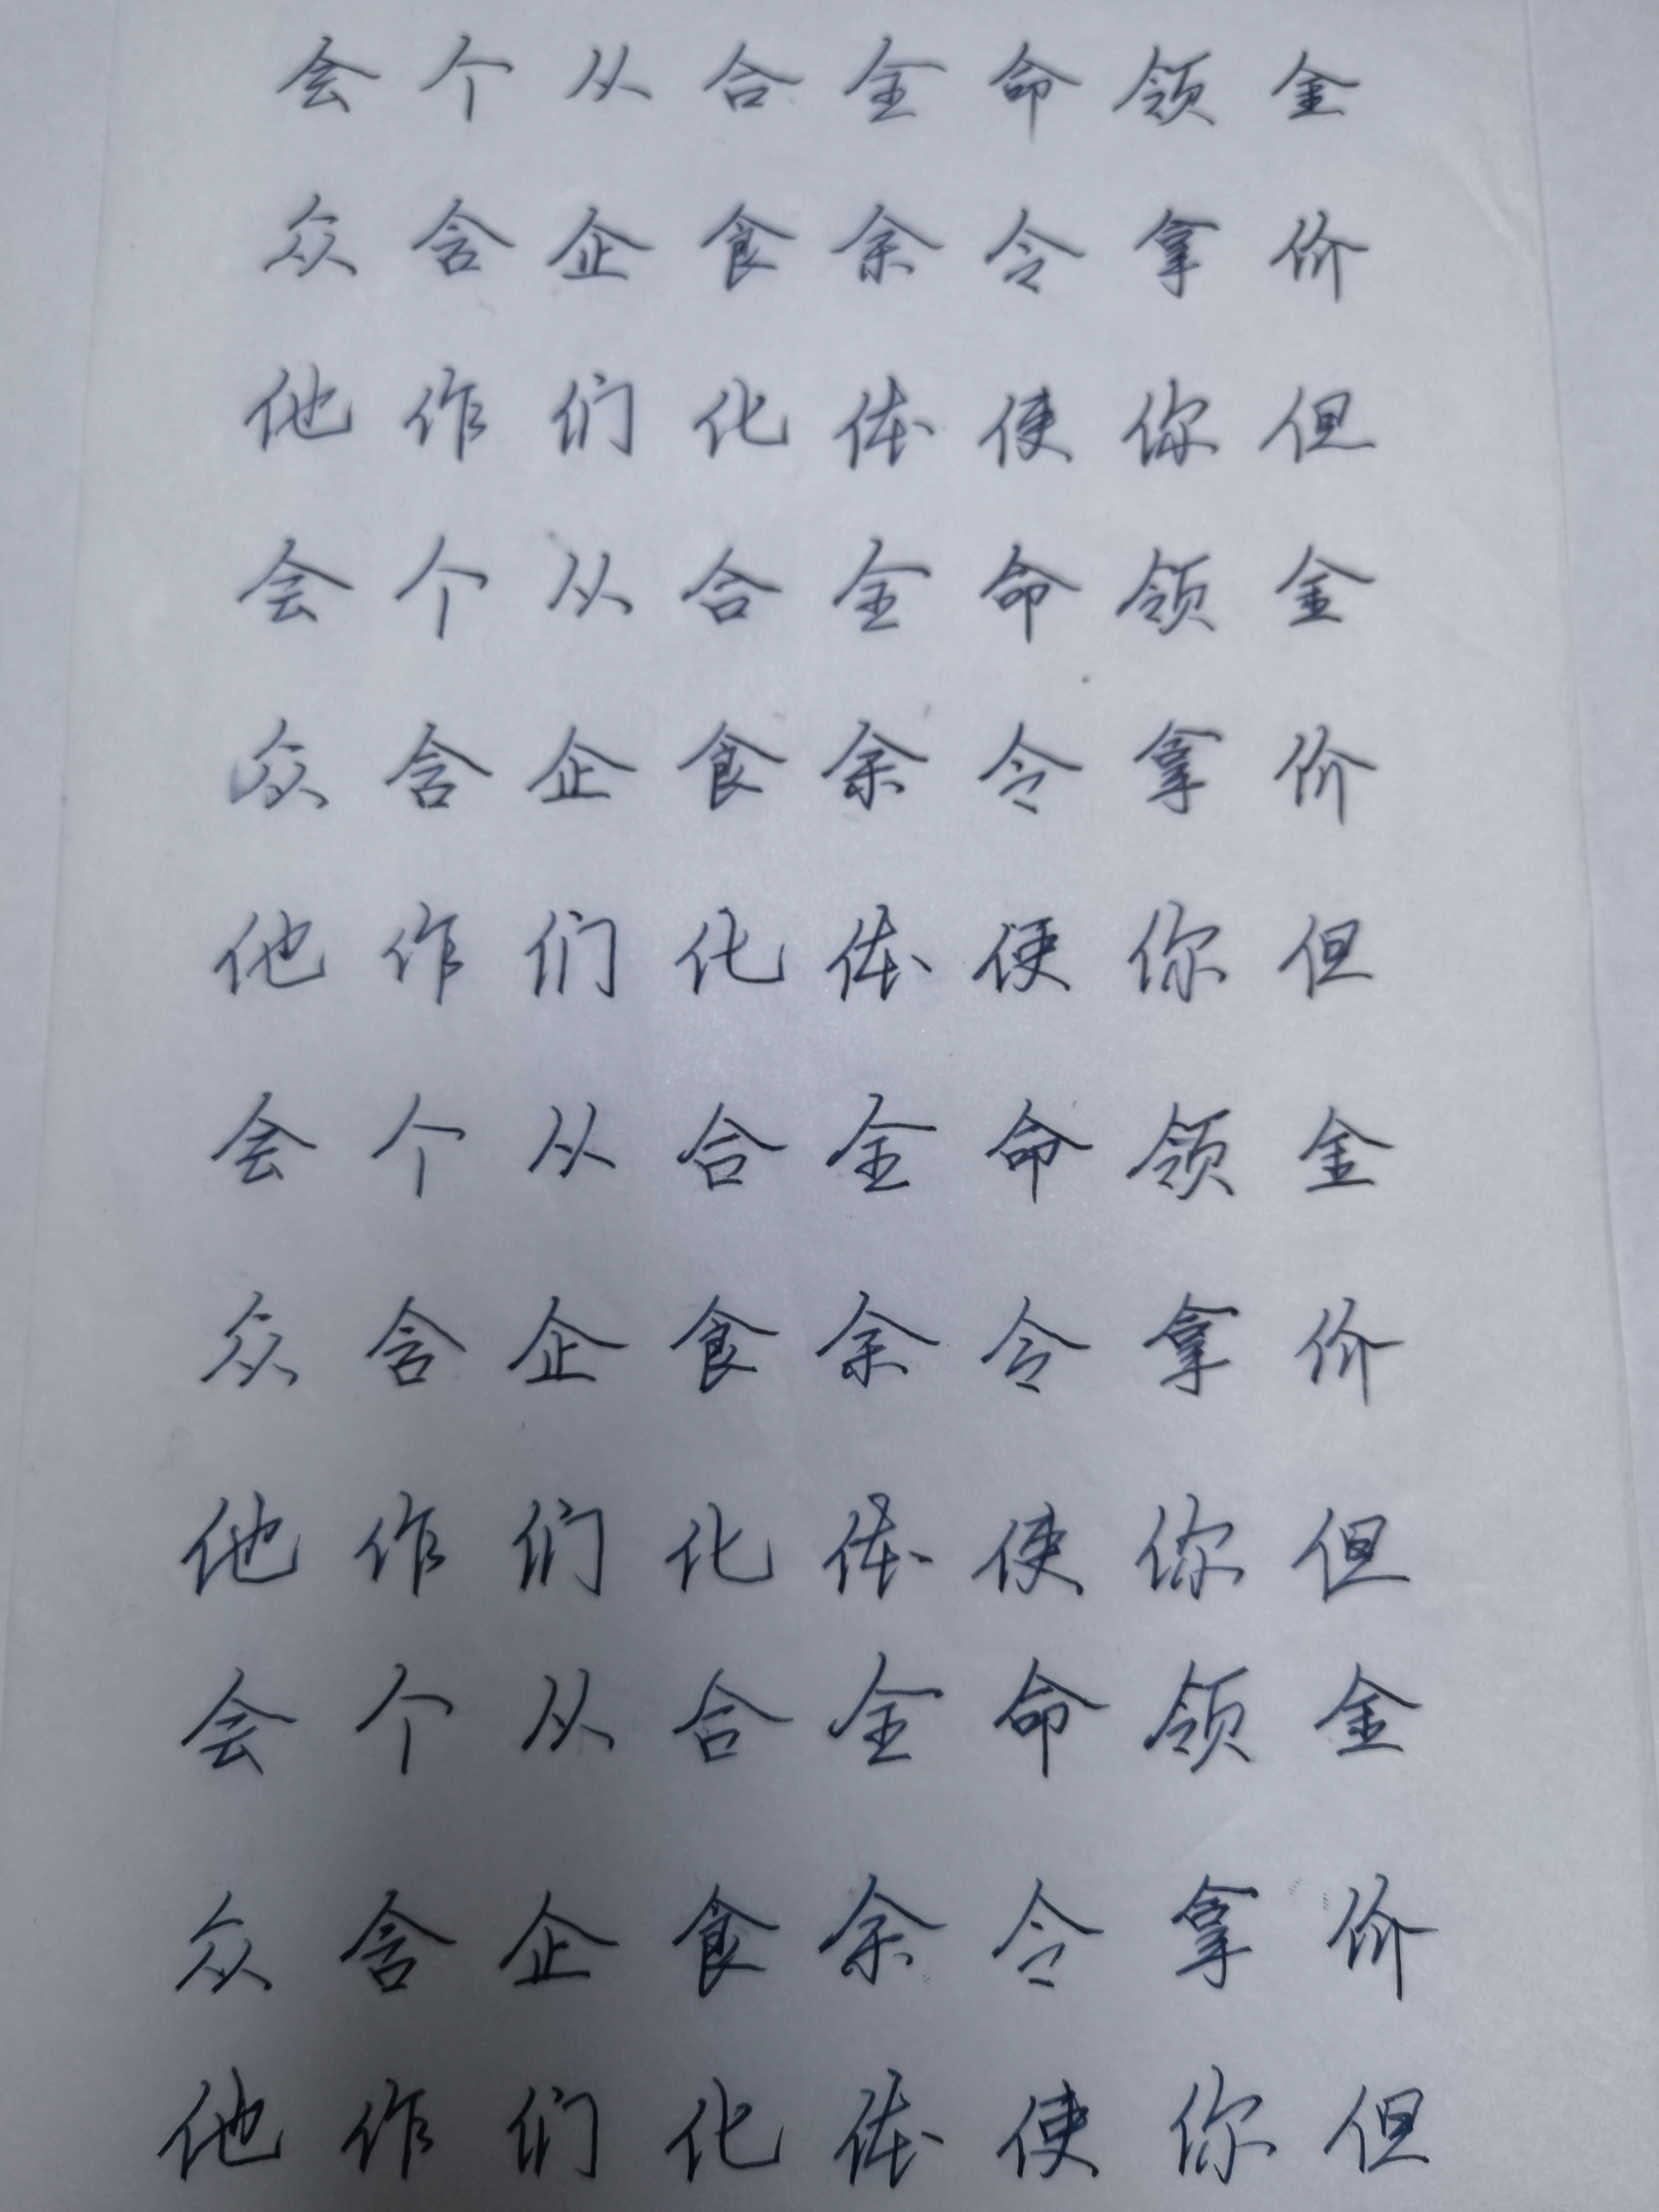 会个从合全命领金
众含企食余令拿价
他作们化体使你但
会个从合全命领金
众含企食余令拿价
他作们化体使你但
会个从合全命领金
众含企食余令拿价
他作们化体使你但
会个从合全命领金
众含企食余令拿价
他作们化体使你但